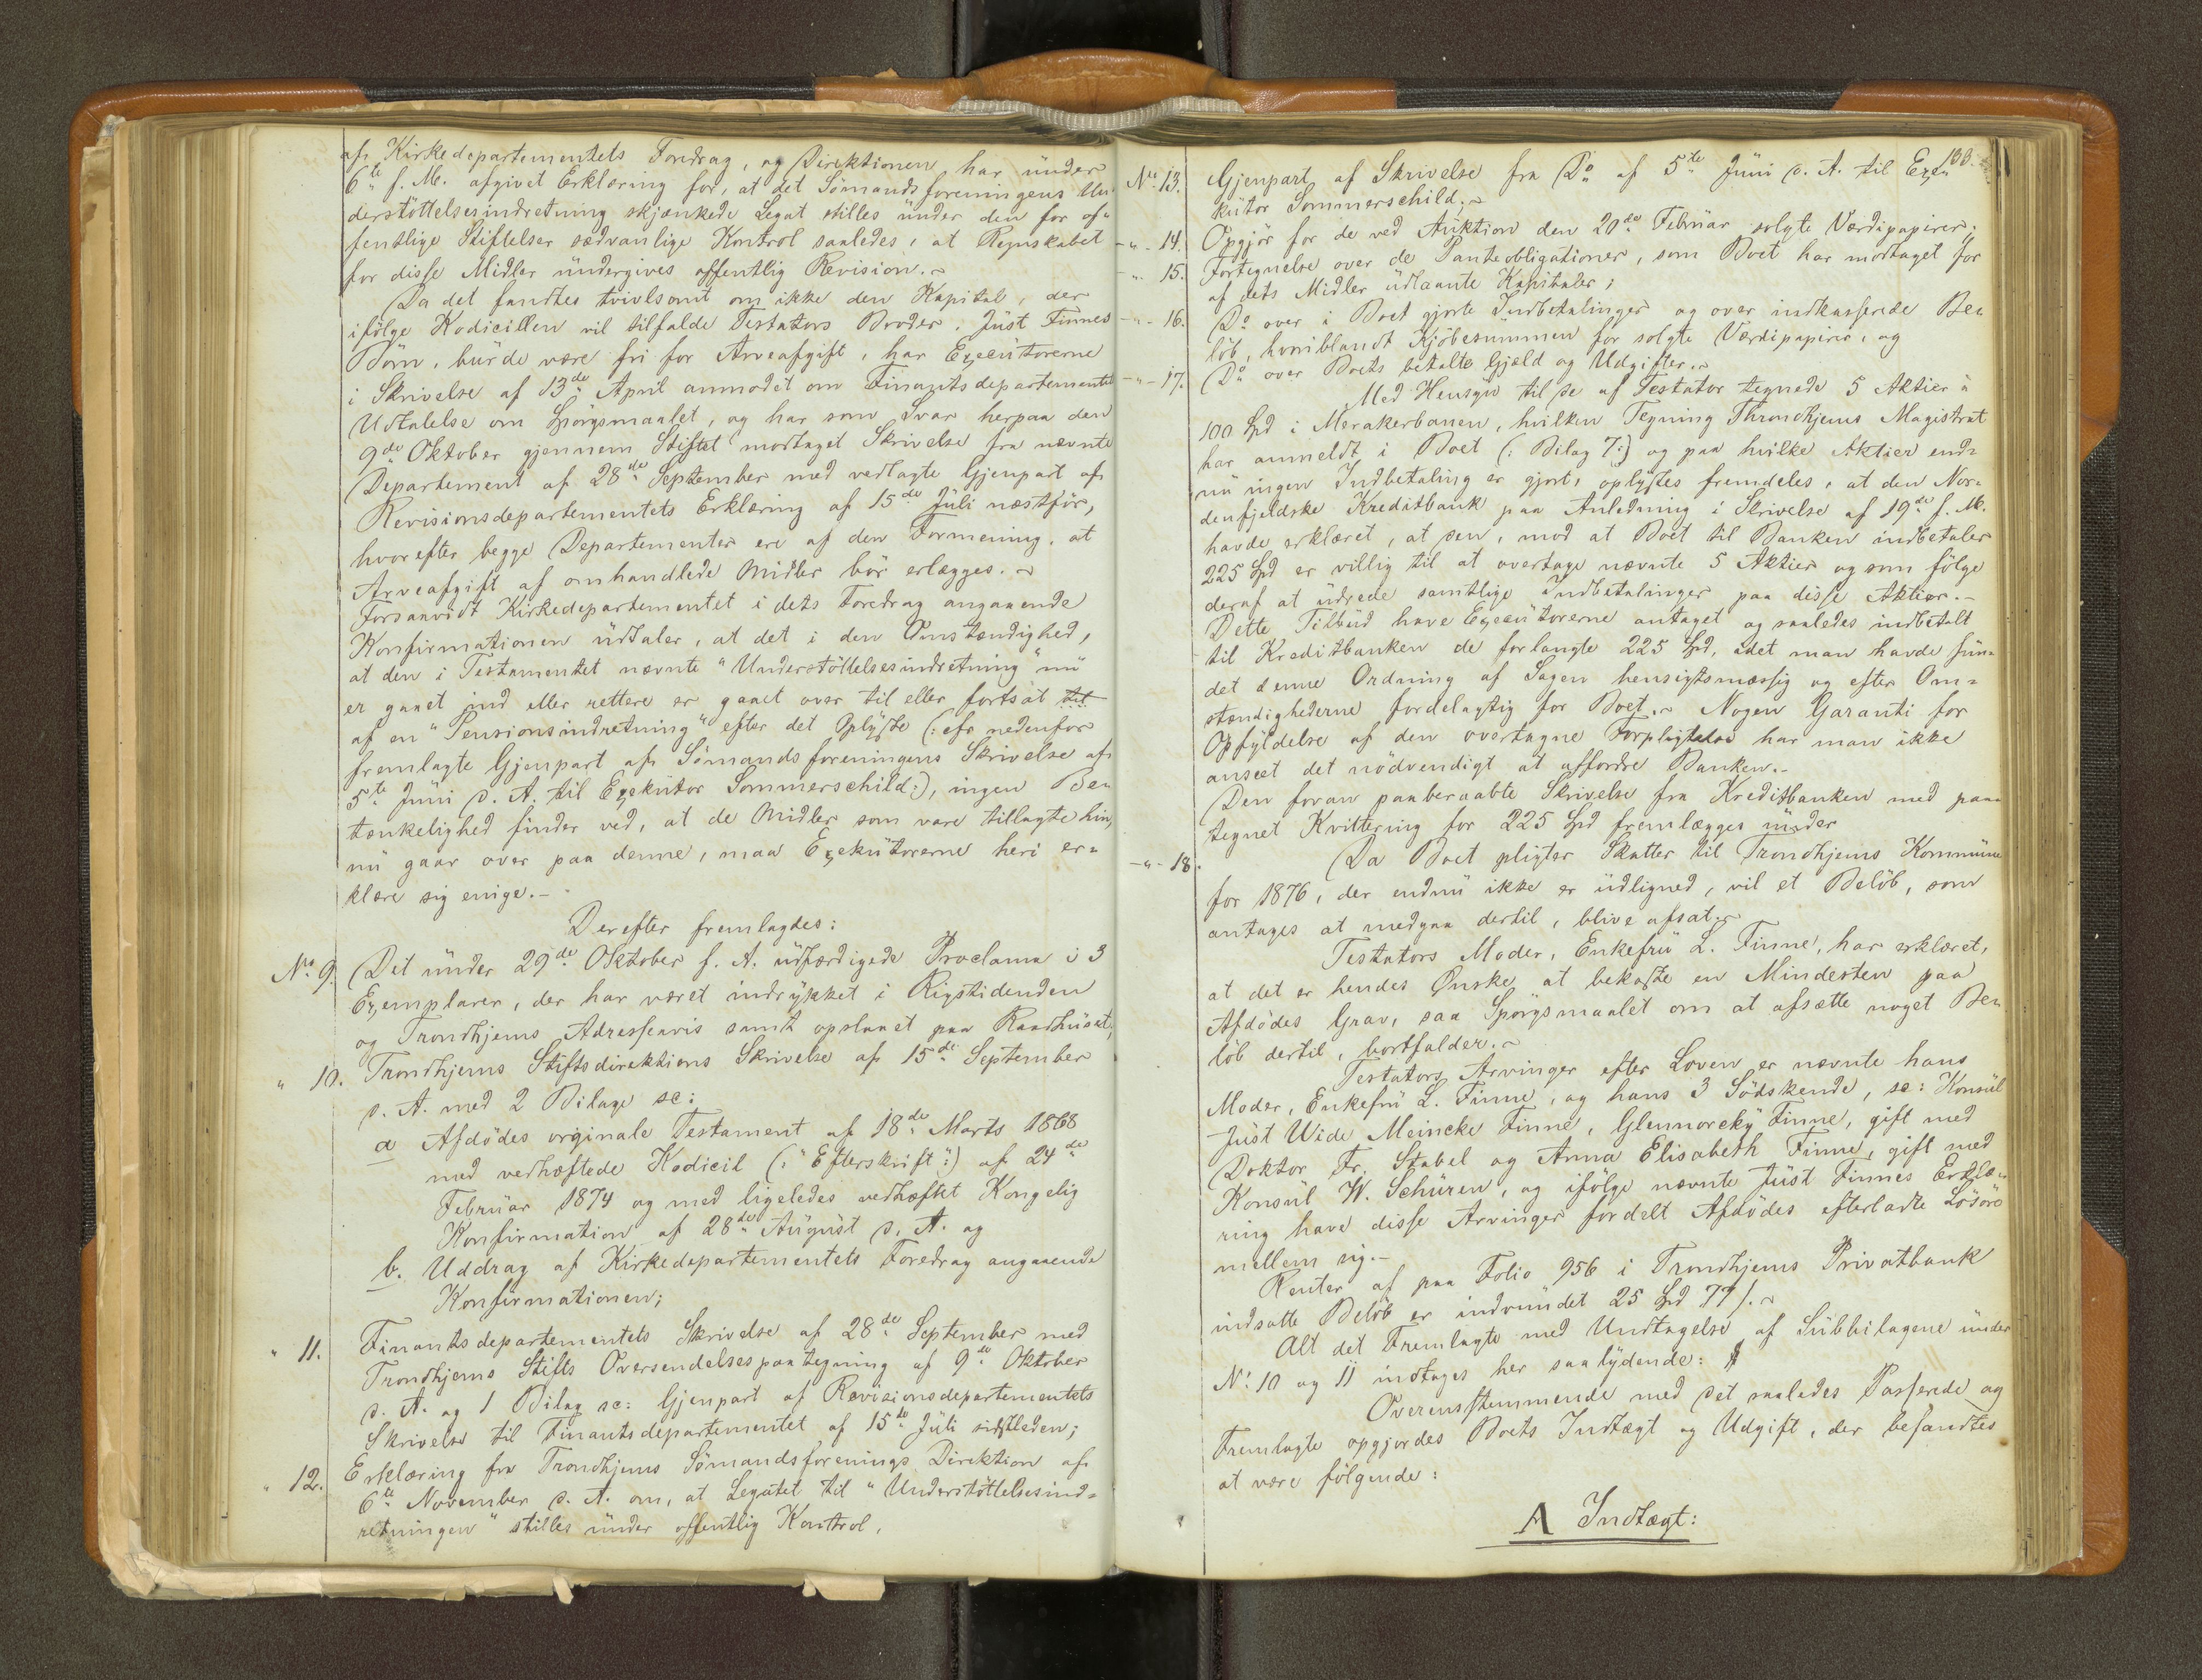 af Kirkedepartementets Foredrag, og Direktionen har under
6te f. M. afgivet Erklæring for, at det Sömandsforeningens Un-
derstöttelsesindretning skjænkede Legat stilles under den for of-
fentlige Stiftelser sædvanlige Kontrol saaledes, at Regnskabet
for disse Midler undergives offentlig Revision.-
Da det fandtes tvivlsomt om ikke den Kapital, der
ifölge Kodicillen vil tilfalde Testators Broder, Just Finnes
Börn, burde være fri for Arveafgift, har Exekutorerne
i Skrivelse af 13de April anmodet om Finantsdepartementets
Udtalelse om Spörgsmaalet, og har som Svar herpaa den
9de Oktober gjennem Stiftet modtaget Skrivelse fra nævnte
Departement af 28de September med vedlagte Gjenpart af
Revisionsdepartementets Erklæring af 15de Juli næstfør,
hvorefter begge Departementer ere af den Formening, at
Arveafgift af omhandlede Midler bör erlægges.-
Forsaavidt Kirkedepartementet i dets Foredrag angaaende
Konfirmationen udtaler, at det i den Omstændighed,
at den i Testamentet nævnte "Understöttelsesindretning" nu
er gaaet ind eller rettere er gaaet over til eller fortsat til
af en "Pensionsindretning" efter det Oplyste (: cfr nedenfor
fremlagte Gjenpart af Sömandsforeningens Skrivelse af
5te Juni d. A. til Exekutor Sommerschild:), ingen Be-
tænkelighed finder ved, at de Midler som vare tillagte hin,
nu gaar over paa denne, maa Exekutorerne heri er-
klære sig enige.-
Derefter fremlagdes:
No 9. Det under 29de Oktober f. A. udfærdigede Proclama i 3
Exemplarer, der har været indrykket i Rigstidenden
og Trondhjems Adresseavis samt opslaaet paa Raadhuset;
" 10. Trondhjems Stiftsdirektions Skrivelse af 15de September
d. A. med 2 Bilage sc:
a Afdödes originale Testament af 18de Marts 1868
med vedhæftede Kodicil (:"Efterskrift":) af 24de
Februar 1874 og med ligeledes vedhæftet Kongelig
Konfirmation af 28de August d. A. og
b. Uddrag af Kirkedepartementets Foredrag angaaende
Konfirmationen;
" 11. Finantsdepartementets Skrivelse af 28de September med
Trondhjems Stifts Oversendelsespaategning af 9de Oktober
d. A. og 1 Bilag sc: Gjenpart af Revisionsdepartementets
Skrivelse til Finantsdepartementet af 15de Juli sidstleden;
" 12. Erklæring fra Trondhjems Sömandsforenings Direktion af
6te November d. A. om, at Legatet til "Understöttelsesind-
retningen" stilles under offentlig Kontrol,
133.
No 13. Gjenpart af Skrivelse fra Do af 5te Juni d. A. til Exe-
kutor Sommerschild;-
-"- 14. Opgjör for de ved Auktion den 20de Februar solgte Værdipapirer;
-"- 15. Fortegnelse over de Panteobligationer, som Boet har modtaget for
af dets Midler udlaante Kapitaler;
-"- 16. Do over i Boet gjorte Indbetalinger og over indkasserede Be-
löb, hvoriblandt Kjöbesummen for solgte Værdipapirer, og
-"- 17. Do over Boets betalte Gjæld og Udgifter.-
Med Hensyn til de af Testator tegnede 5 Aktier à
100 Spd i Merakerbanen, hvilken Tegning Throndhjems Magistrat
har anmeldt i Boet (: Bilag 7:) og paa hvilke Aktier end-
nu ingen Indbetaling er gjort, oplystes fremdeles, at den Nor-
denfjeldske Kreditbank paa Anledning i Skrivelse af 19de f. M.
havde erklæret, at den, mod at Boet til Banken indbetaler
225 Spd er villig til at overtage nævnte 5 Aktier og som fölge
deraf at udrede samtlige Indbetalinger paa disse Aktier.-
Dette Tilbud have Exekutorerne antaget og saaledes indbetalt
til Kreditbanken de forlangte 225 Spd, idet man havde fun-
det denne Ordning af Sagen hensigtsmæssig og efter Om-
stændighederne fordelagtig for Boet.- Nogen Garanti for
Opfyldelse af den overtagne Forpligtelse har man ikke
anseet det nödvendigt at affordre Banken.-
Den foran paaberaabte Skrivelse fra Kreditbanken med paa-
tegnet Kvittering for 225 Spd fremlægges under
-"- 18. Da Boet pligter Skatter til Trondhjems Kommune
for 1876, der endnu ikke er udlignet, vil et Belöb, som
antages at medgaa dertil, blive afsat.-
Testators Moder, Enkefru L. Finne, har erklæret,
at det er hendes Ønske at bekoste en Mindesten paa
Afdödes Grav, saa Spörgsmaalet om at afsætte noget Be-
löb dertil, bortfalder.-
Testators Arvinger efter Loven er nævnte hans
Moder, Enkefru L. Finne, og hans 3 Södskende, sc: Konsul
Just Wide Meincke Finne, Glennorcky Finne, gift med
Doktor Fr. Stabel og Anna Elisabeth Finne, gift med
Konsul W. Schüren, og ifölge nævnte Just Finnes Erklæ-
ring have disse Arvinger fordelt Afdödes efterladte Lösöre
mellem sig.-
Renter af paa Folio 956 i Trondhjems Privatbank
indsatte Belöb er indvundet 25 Spd 77 /.-
Alt det Fremlagte med Undtagelse af Subbilagene under
No 10 og 11 indtages her saalydende:
Overensstemmende med det saaledes Passerede og
Fremlagte opgjordes Boets Indtægt og Udgift, der befandtes
at være fölgende:
A Indtægt: